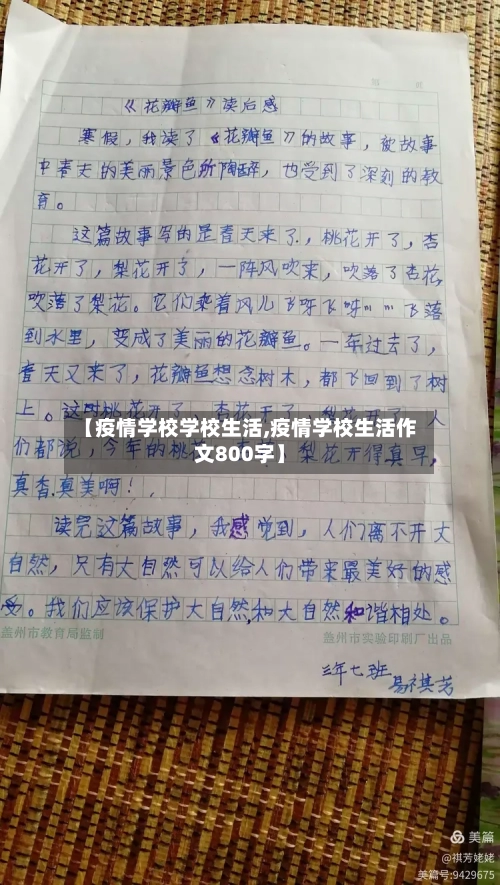 《花瓣鱼》读后感
寒假，我读了《花瓣鱼》的故事，被故事
中春天的美丽景色所陶醉，也受到了深刻的教
育。
这篇故事写的是春天来了，桃花开了，杏
花开了，梨花开了，一阵风吹来，吹落了杏花，
吹落了梨花。它们乘着风儿飞呀飞呀……飞落
到水里，变成了美丽的花瓣鱼。一年过去了，
春天又来了，花瓣鱼想念树木，都飞回到了树
上。这时桃花开了，杏花开了，梨花开了，人
【疫情学校学校生活,疫情学校生活作
文800字】
们都说，今年的桃花 梨花开得真早，
真香，真美啊！
读完这篇故事，我感觉到，人们离不开大
自然，只有大自然可以给人们带来最美好的感
受。我们应该保护大自然，和大自然和谐相处。
盖州市教育局监制 盖州市实验印刷厂出品
三年七班
易祺芳
美篇
@祺芳姥姥
美篇号:9429675